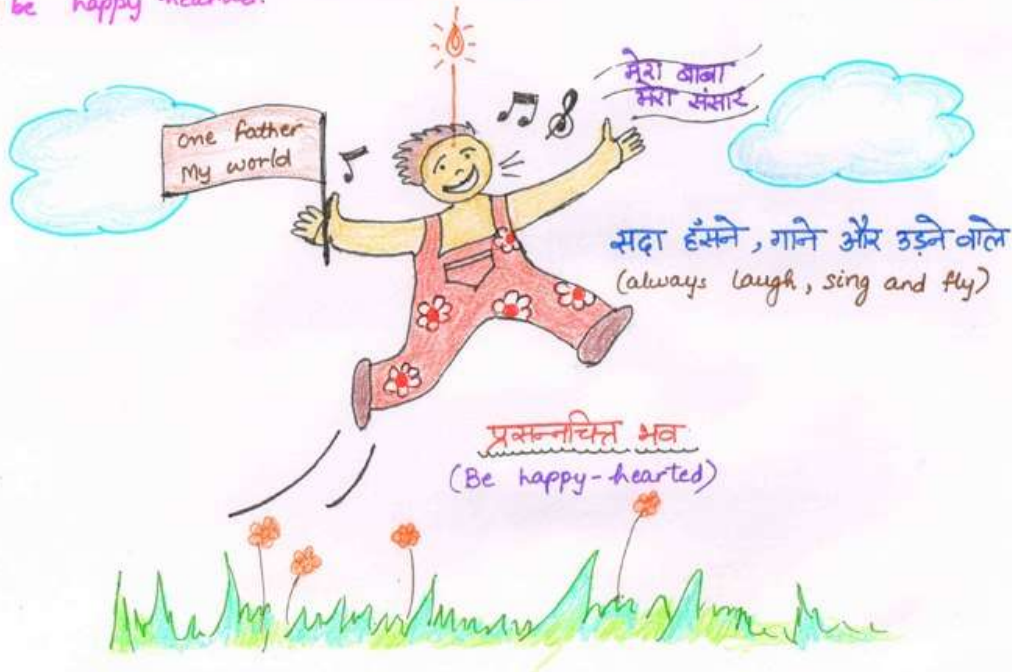 be happy-hearted.
One father
My world
मेरा बाबा
मेरा संसार
सदा हँसने, गाने और उड़ने वाले
(always laugh, sing and fly)
प्रसन्नचित्त भव
(Be happy-hearted)